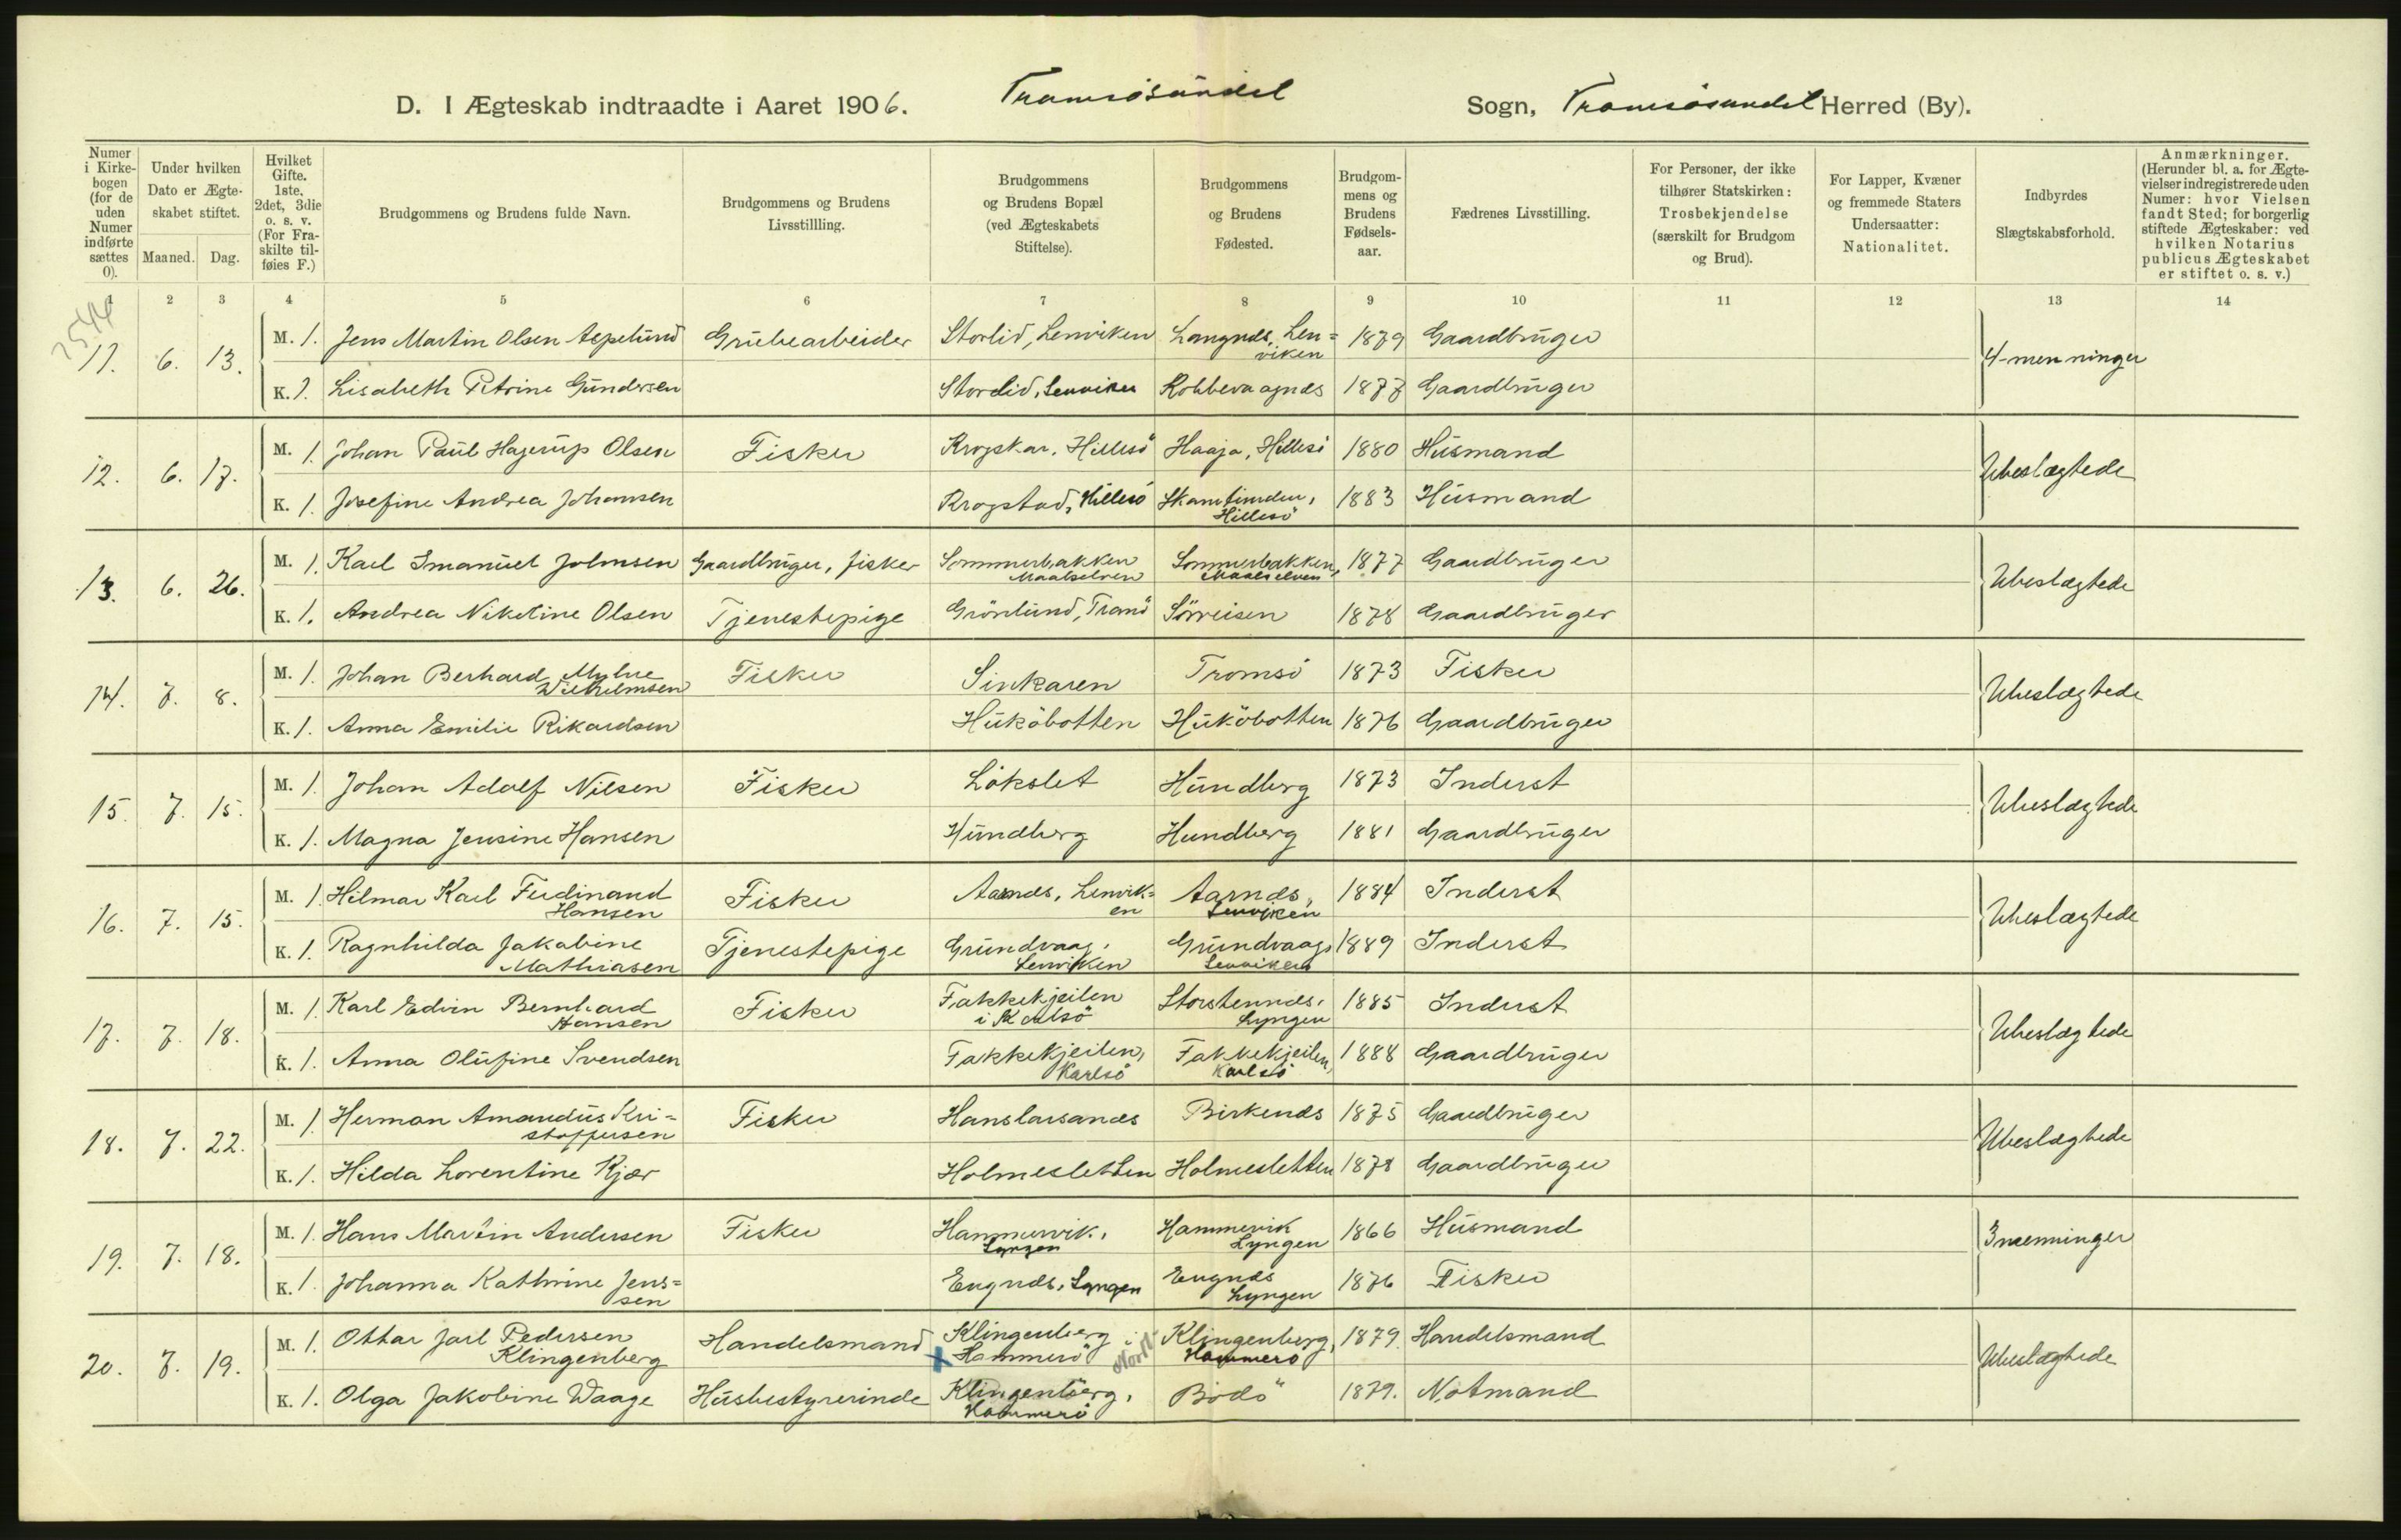 D. I Ægteskab indtraadte i Aaret 1906. Tromsøsundet Sogn, Tromsøsundet Herred (By).
Numer i Kirkebogen (for de uden Numer indførte sættes 0).
Under hvilken Dato er Ægteskabet stiftet.
Maaned. Dag.
Hvilket Gifte. 1ste, 2det, 3die o. s. v. (For Fraskilte tilføies F.)
Brudgommens og Brudens fulde Navn.
Brudgommens og Brudens Livsstillling.
Brudgommens og Brudens Bopæl (ved Ægteskabets Stiftelse).
Brudgommens og Brudens Fødested.
Brudgommens og Brudens Fødselsaar.
Fædrenes Livsstilling.
For Personer, der ikke tilhører Statskirken: Trosbekjendelse (særskilt for Brudgom og Brud).
For Lapper, Kvæner og fremmede Staters Undersaatter: Nationalitet.
Indbyrdes Slægtskabsforhold.
Anmærkninger. (Herunder bl. a. for Ægtevielser indregistrerede uden Numer: hvor Vielsen fandt Sted; for borgerlig stiftede Ægteskaber: ved hvilken Notarius publicus Ægteskabet er stiftet o. s. v.)
1 2 3 4 5 6 7 8 9 10 11 12 13 14
11. 6. 13. M. 1. Jens Martin Olsen Aspelund Grubearbeider Storlid, Lenviken Langnes, Lenviken 1879 Gaardbruger 4-menninger
K. 1. Lisabeth Petrine Gundersen Storlid, Lenviken Kobbevaagnes 1877 Gaardbruger
12. 6. 17. M. 1. Johan Paul Hagerup Olsen Fisker Krogskar, Hillesö Haaja, Hillesö 1880 Husmand Ubeslægtede
K. 1. Josefine Andrea Johansen Krogstad, Hillesö Hillesö 1883 Husmand
13. 6. 26. M. 1. Karl Imanuel Johnsen Gaardbruger, fisker Sommerbakken Maalselven Sommerbakken, Maalselven 1877 Gaardbruger Ubeslægtede
K. 1. Andrea Nikoline Olsen Tjenestepige Grönlund, Tranö Sörreisen 1878 Gaardbruger
14. 7. 8. M. 1. Johan Berhard Myhre Wilhelmsen Fisker Sinkaren Tromsö 1873 Fisker Ubeslægtede
K. 1. Anna Emilie Rikardsen Huköbotten Huköbotten 1876 Gaardbruger
15. 7. 15. M. 1. Johan Adolf Nilsen Fisker Lökslet Hundberg 1873 Inderst Ubeslægtede
K. 1. Magna Jensine Hansen Hundberg Hundberg 1881 Gaardbruger
16. 7. 15. M. 1. Hilmar Karl Ferdinand Hansen Fisker Aarnes, Lenviken Aarnes, Lenviken 1884 Inderst Ubeslægtede
K. 1. Ragnhilda Jakabine Mathiasen Tjenestepige Grundvaag, Lenviken Grundvaag, Lenviken 1889 Inderst
17. 7. 18. M. 1. Karl Edvin Bernhard Hansen Fisker Fakkekjeilen i Karlsö Storstennes, Lyngen 1885 Inderst Ubeslægtede
K. 1. Anna Olufine Svendsen Fakkekjeilen, Karlsö Fakkekjeilen, Karlsö 1888 Gaardbruger
18. 7. 22. M. 1. Herman Amandus Kristoffersen Fisker Hanslarsanes Birkenes 1875 Gaardbruger Ubeslægtede
K. 1. Hilda Lorentine Kjær Holmesletten Holmesletten 1878 Gaardbruger
19. 7. 18. M. 1. Hans Martin Andersen Fisker Hammervik, Lyngen Hammervik Lyngen 1866 Husmand 3menninger
K. 1. Johanna Kathrine Jenssen Engnes, Lyngen Engnes Lyngen 1876 Fisker
20. 7. 19. M. 1. Ottar Jarl Pedersen Klingenberg Handelsmand Klingenberg i Hammerö Nordl. Klingenberg, Hammerö 1879. Handelsmand Ubeslægtede
K. 1. Olga Jakobine Waage Husbestyrerinde Klingenberg, Hammerö Bodö 1879. Notmand